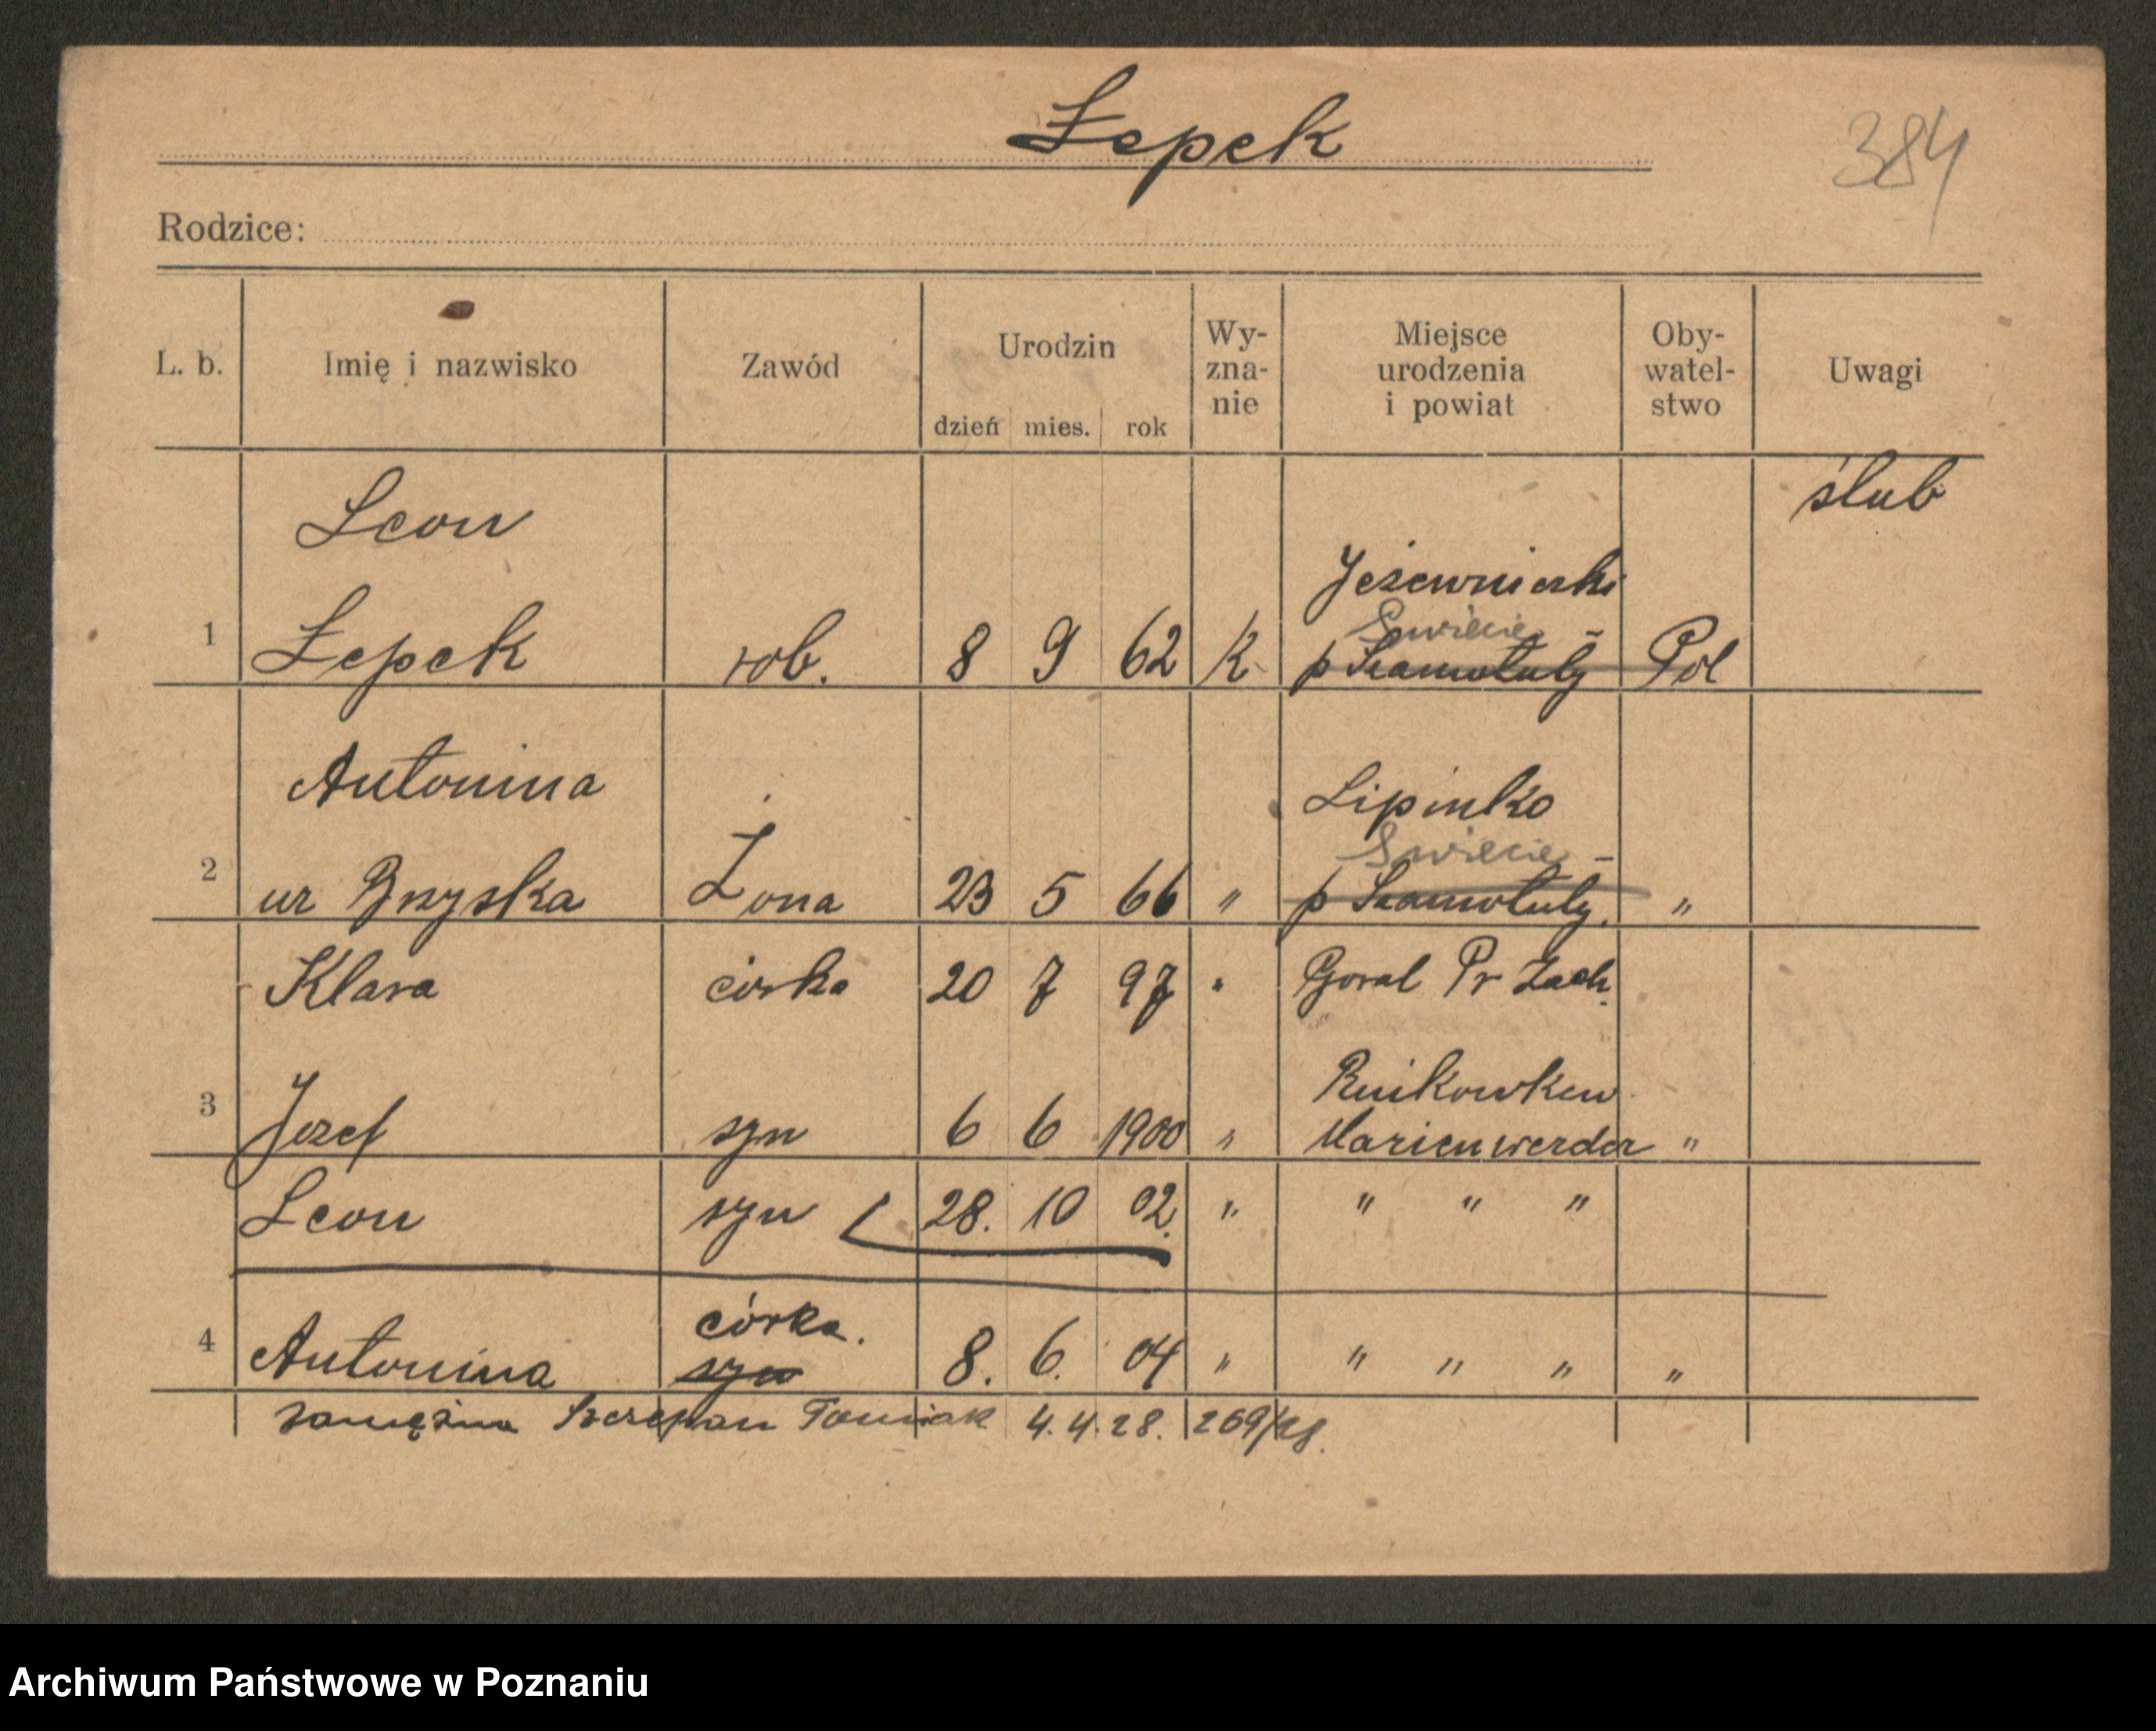 Łepek
384
Rodzice:
L. b. Imię i nazwisko Zawód Urodzin dzień mies. rok Wy-zna-nie Miejsce urodzenia i powiat Oby-watel-stwo Uwagi
ślub
Leon
1 Łepek rob. 8 9 62 K Pol
Świecie -
p Szamotuły
Antonina
Lipinko
Świecie -
2 ur Żona 23 5 66 " p Szamotuły. "
Klara córka 20 7 97 " Goral Pr Zach.
3 Jozef syn 6 6 1900 " Marienwerder "
Leon syn 28. 10 02. " " " "
córka.
4 Antonina syn 8. 6. 04 " " " " "
zamężna Szczepan Tomiak 4.4.28. 269/28.
Archiwum Państwowe w Poznaniu